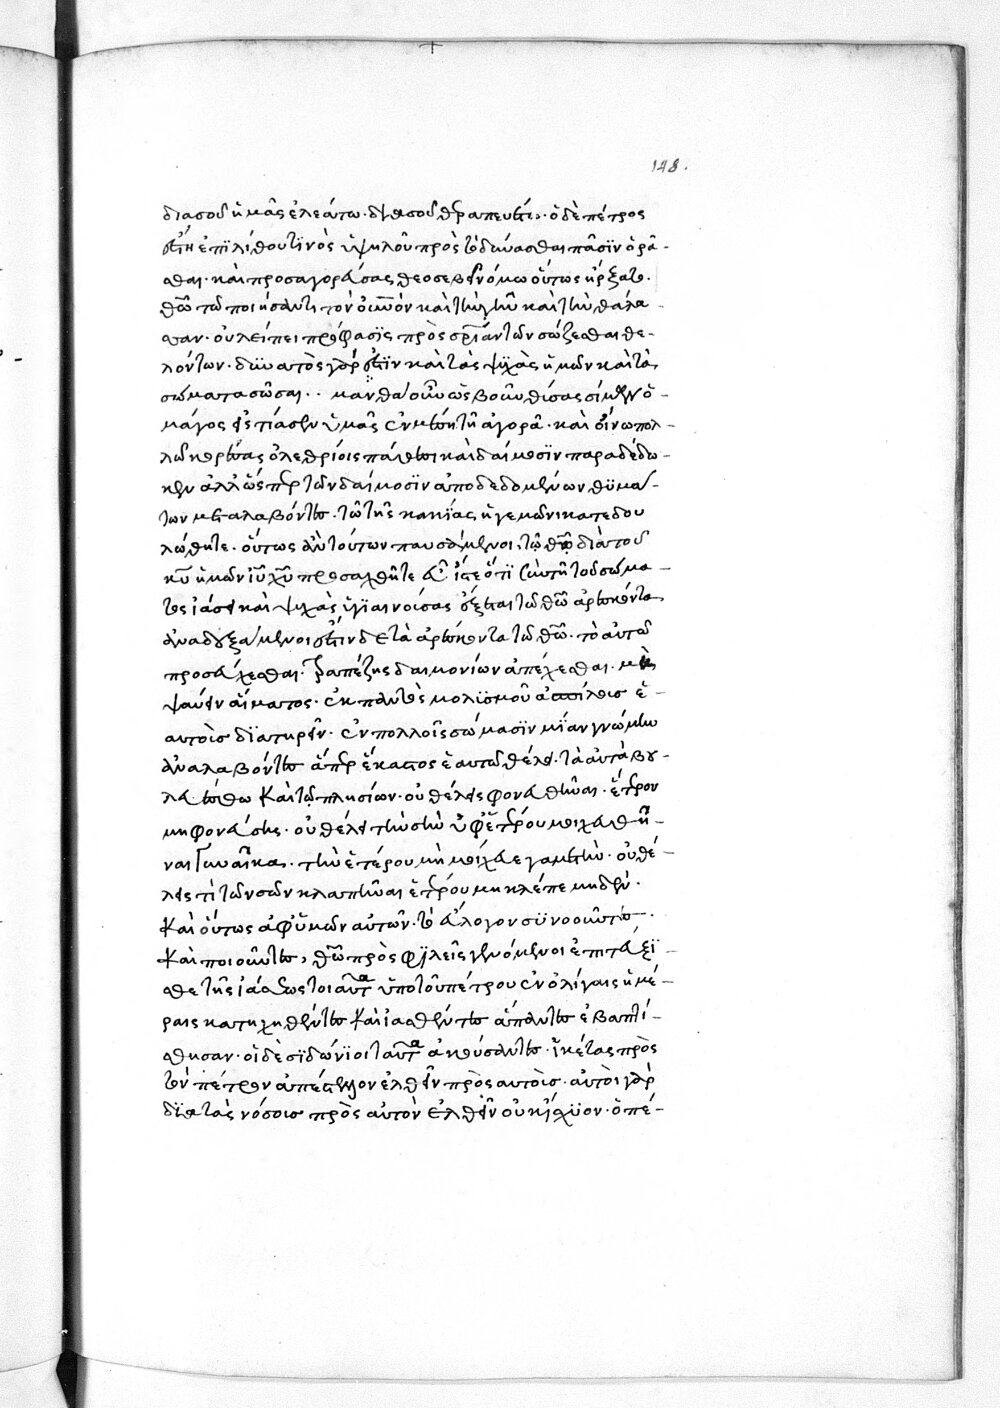 148.
διὰ σοῦ ἡμᾶς ἐλεάτω· διὰ σοῦ θεραπευέτω· ὁ δὲ πέτρος
στὰς ἐπὶ λίθου τινὸς ὑψηλοῦ πρὸς τὸ δύνασθαι πᾶσιν ὁρᾶ-
σθαι· καὶ προσαγορεύσας θεοσεβεῖ νόμω οὕτως ἤρξατο·
θ̅ω̅ τῶ ποιήσαντι τὸν οὐ̅ν̅όν καὶ τὴν γῆν καὶ τὴν θάλα-
σσαν· οὐ λείπει πρόφασις πρὸς σ̅ρ̅ίαν τῶν σώζεσθαι θε-
λόντων· δυνατὸς γάρ ἐστιν καὶ τὰς ψυχὰς ἡμῶν καὶ τὰ
σώματα σῶσαι·· μανθάνω οὖν ὡς βοῦν θύσας σίμων ὁ
μάγος εἱστίασεν ὑμᾶς ἐν μέση τῆ ἀγορᾶ· καὶ οἴνω πολ-
λῶ κορέσας ὀλεθρίοις πάθεσι καὶ δαίμοσιν παραδέδω-
κεν ἀλλ' ὡς πρὶν τῶν δαίμοσιν ἀποδεδομένων θυμά-
των μεταλαβόντες· τῶ τῆς κακίας ἡγεμόνι κατεδου
λώθητε· οὕτως ἂν τούτων παυσάμενοι, τῶ θ̅ω̅ διὰ τοῦ
κ̅υ̅ ἡμῶν ι̅υ̅ χ̅υ̅ προσέλθητε εὖ ἴστε ὅτι σὺν τῆ τοῦ σώμα-
τος ἰάσει καὶ ψυχὰς ὑγιαινούσας ἕξεται τῶ θ̅ω̅ ἀρέσκοντα
ἀναδεξάμενοι ἔστιν δὲ τὰ ἀρέσκοντα τῶ θ̅ω̅· τὸ αὐτῶ
προσεύχεσθαι· τραπέζης δαιμονίων ἀπέχεσθαι· μὴ
ψαύειν αἵματος· ἐκ παντὸς μολυσμοῦ ἀσπίλους ἑ-
αυτοὺς διατηρεῖν· ἐν πολλοῖς σώμασιν μίαν γνώμην
ἀναλαβόντες ἅπερ ἕκαστος ἑαυτῶ θέλει· τὰ αὐτὰ βου-
λευέσθω καὶ τῶ πλησίον· οὐ θέλεις φονευθῆναι· ἕτερον
μὴ φονεύσης· οὐ θέλεις τὴν σὴν ὑφ' ἑτέρου μοιχευθῆ-
ναι γυναῖκα· τὴν ἑτέρου μὴ μοίχευε γαμετήν· οὐ θέ-
λεις τὶ τῶν σῶν κλαπῆναι ἑτέρου μὴ κλέπτε μηδέν·
καὶ οὕτως ἀφ' ὑμῶν αὐτῶν· τὸ εὔλογον συνοοῦντες·
καὶ ποιοῦντες, θ̅ω̅ προσφιλεῖς γενόμενοι ἐπιτεύξε-
σθε τῆς ἰάσεως τοιαῦτα ὑπὸ τοῦ πέτρου ἐν ὀλίγαις ἡμέ-
ραις κατηχηθέντες καὶ ἰαθέντες ἅπαντες ἐβαπτί-
σθησαν· οἱ δὲ σιδώνιοι ταῦτα ἀκούσαντες· ἱκέτας πρὸς
τὸν πέτρον ἀπέστειλον ἐλθεῖν πρὸς αὐτοὺς· αὐτοὶ γὰρ
διὰ τὰς νόσους πρὸς αὐτὸν ἐλθεῖν οὐκ ἴσχυον· ὁ πέ-